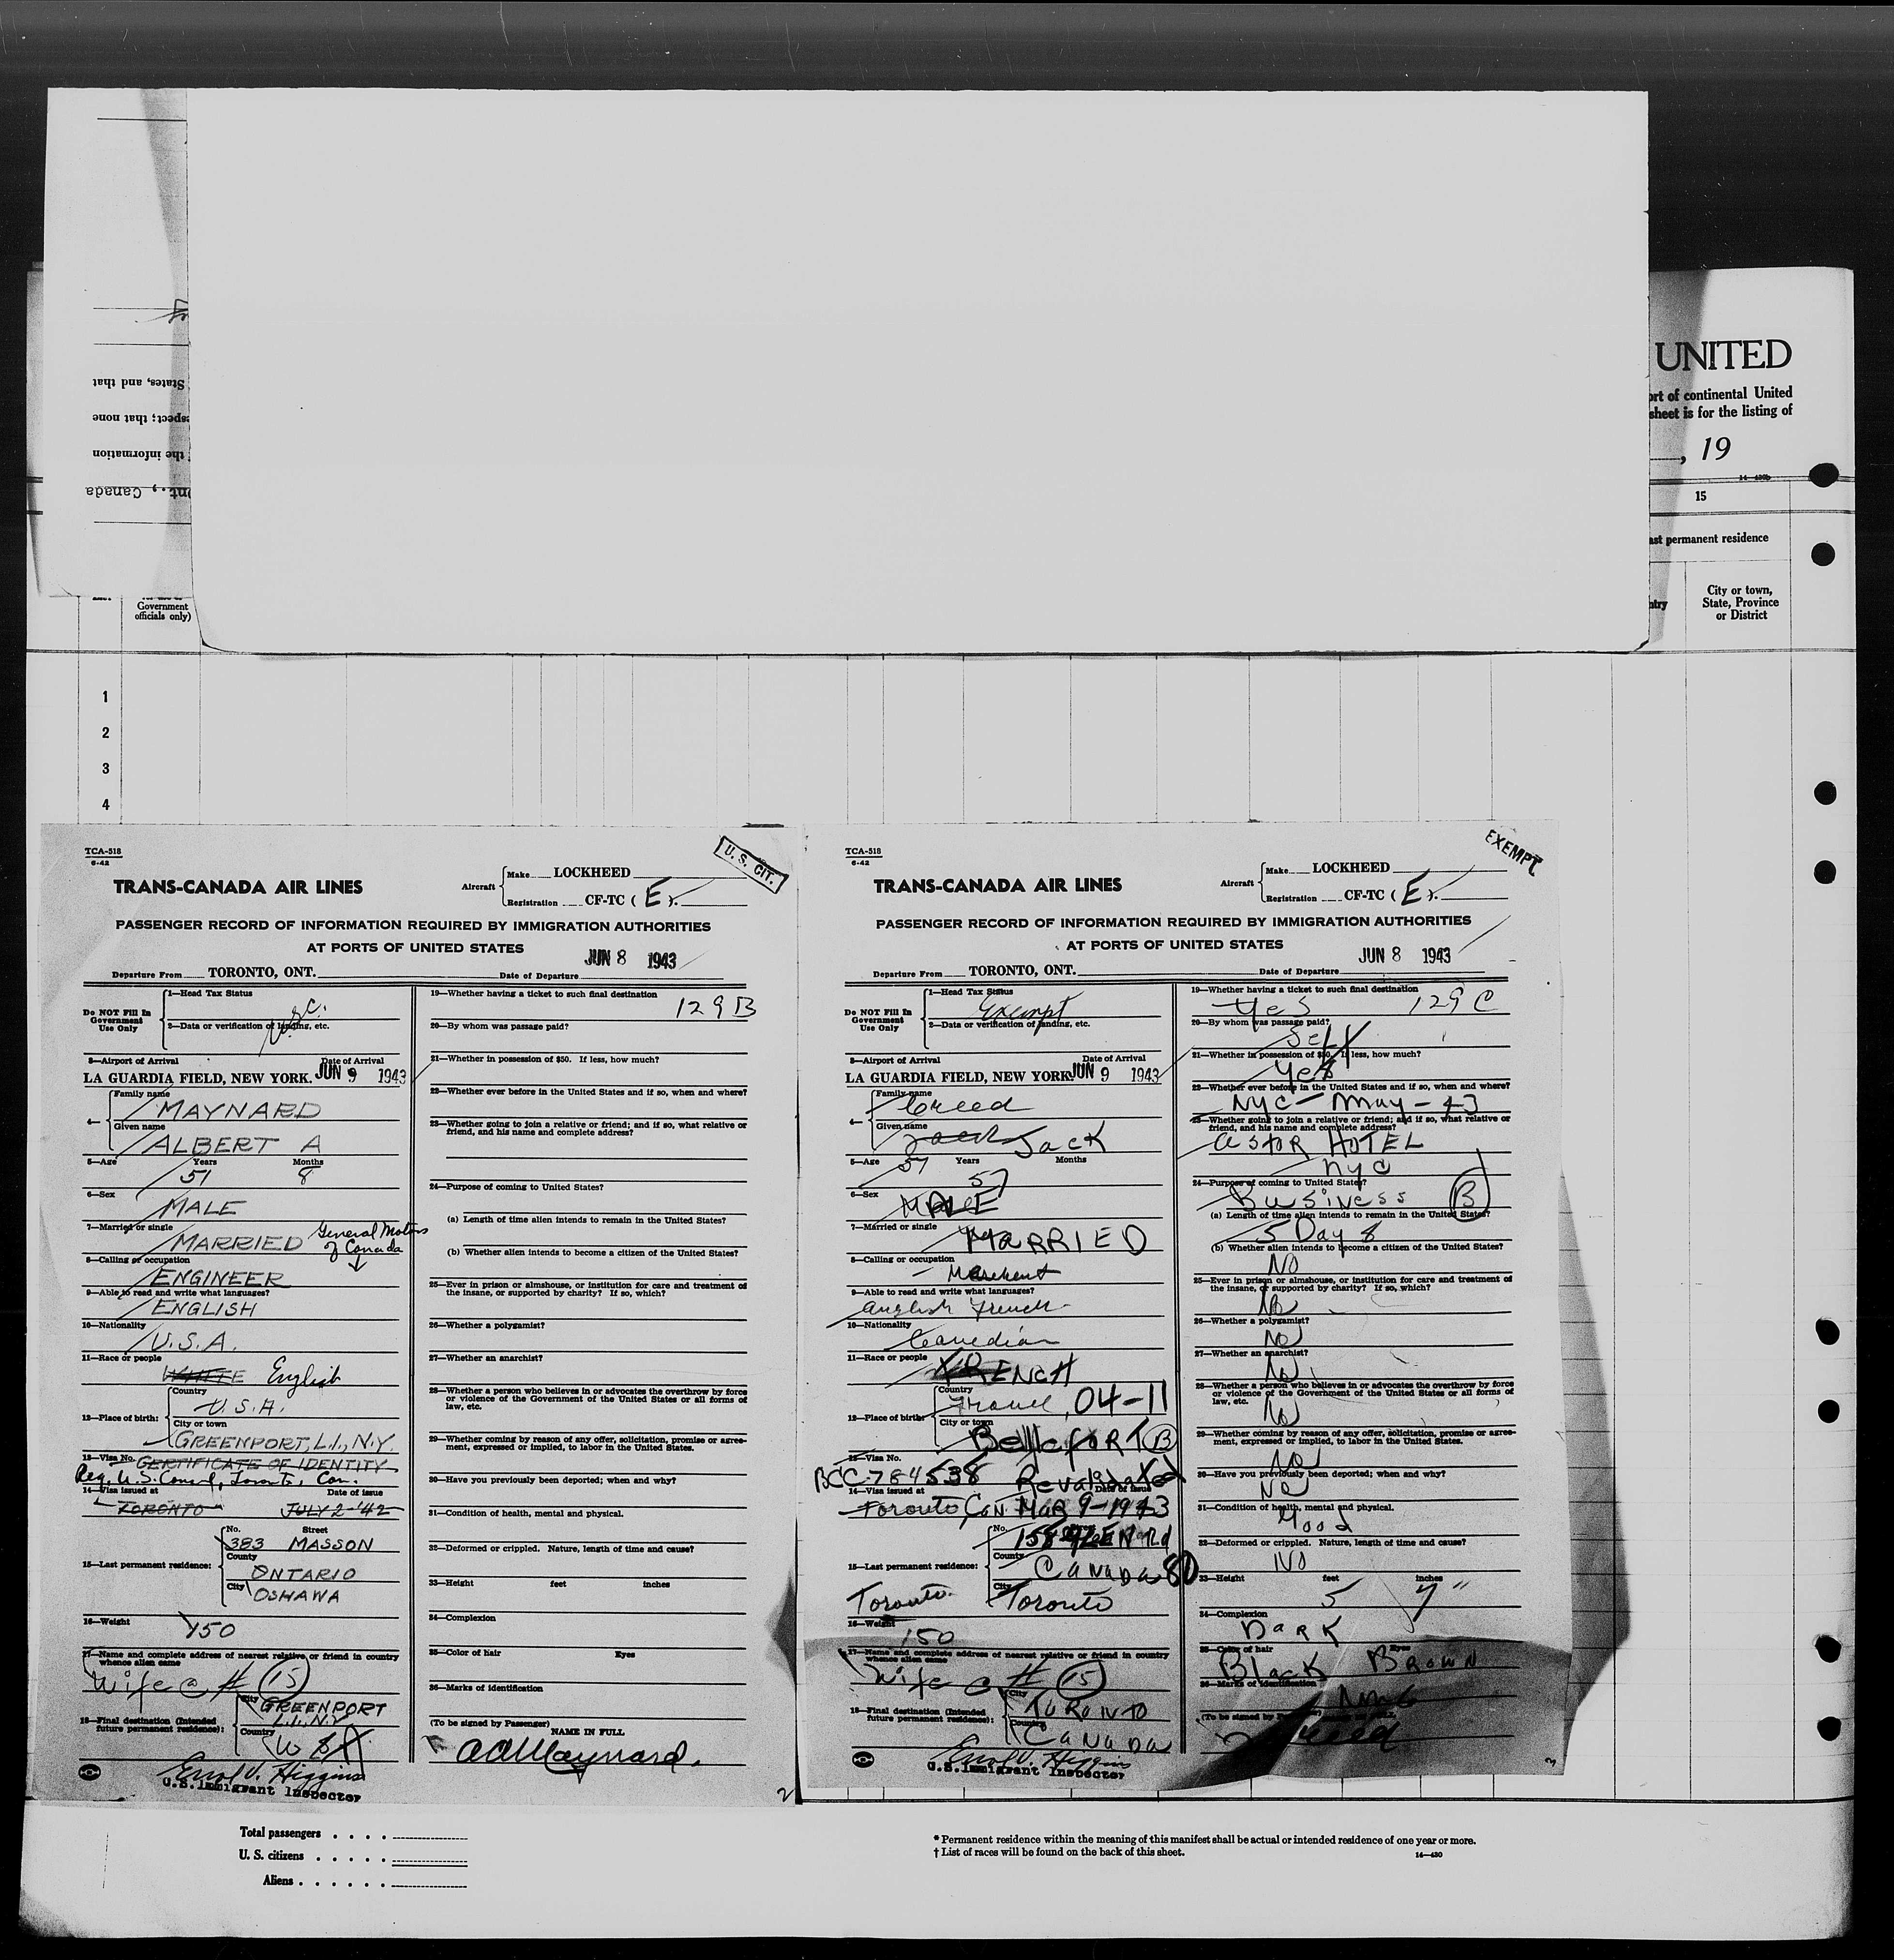 States, and that
spect; that none
the information
Ont., Canada
Government
officials only)
UNITED
ort of continental United
sheet is for the listing of
, 19
14—430b
15
ast permanent residence
ntry
City or town,
State, Province
or District
1
2
3
4
TCA-518
6-42
U. S. CIT.
TRANS-CANADA AIR LINES
Aircraft
Make LOCKHEED
Registration CF-TC ( E ).
PASSENGER RECORD OF INFORMATION REQUIRED BY IMMIGRATION AUTHORITIES
AT PORTS OF UNITED STATES
JUN 8 1943
Departure From TORONTO, ONT. Date of Departure
Do NOT Fill In
Government
Use Only
1—Head Tax Status
usc.
2—Data or verification of landing, etc.
3—Airport of Arrival Date of Arrival
LA GUARDIA FIELD, NEW YORK. JUN 9 1943
4—
Family name
MAYNARD
Given name
ALBERT A
5—Age Years Months
51 8
6—Sex
MALE
7—Married or single
MARRIED
General Motors
of Canada
8—Calling or occupation
ENGINEER
9—Able to read and write what languages?
ENGLISH
10—Nationality
U.S.A.
11—Race or people
WHITE English
12—Place of birth:
Country
U.S.A.
City or town
GREENPORT, L.I., N.Y.
13—Visa No. CERTIFICATE OF IDENTITY
Reg. U.S. Consul, Toronto, Can.
14—Visa issued at Date of issue
TORONTO JULY 2-'42
15—Last permanent residence:
No. Street
383 MASSON
County
ONTARIO
City
OSHAWA
16—Weight
150
17—Name and complete address of nearest relative or friend in country
whence alien came
Wife @ # 15
18—Final destination (Intended
future permanent residence):
City
GREENPORT
L.I., N.Y.
Country
Errol V. Higgins
U.S. Immigrant Inspector
19—Whether having a ticket to such final destination
129 B
20—By whom was passage paid?
21—Whether in possession of $50. If less, how much?
22—Whether ever before in the United States and if so, when and where?
23—Whether going to join a relative or friend; and if so, what relative or
friend, and his name and complete address?
24—Purpose of coming to United States?
(a) Length of time alien intends to remain in the United States?
(b) Whether alien intends to become a citizen of the United States?
25—Ever in prison or almshouse, or institution for care and treatment of
the insane, or supported by charity? If so, which?
26—Whether a polygamist?
27—Whether an anarchist?
28—Whether a person who believes in or advocates the overthrow by force
or violence of the Government of the United States or all forms of
law, etc.
29—Whether coming by reason of any offer, solicitation, promise or agree-
ment, expressed or implied, to labor in the United States.
30—Have you previously been deported; when and why?
31—Condition of health, mental and physical.
32—Deformed or crippled. Nature, length of time and cause?
33—Height feet inches
34—Complexion
35—Color of hair Eyes
36—Marks of identification
(To be signed by Passenger)
NAME IN FULL
A A Maynard.
2
TCA-518
6-42
EXEMPT
TRANS-CANADA AIR LINES
Aircraft
Make LOCKHEED
Registration CF-TC ( E ).
PASSENGER RECORD OF INFORMATION REQUIRED BY IMMIGRATION AUTHORITIES
AT PORTS OF UNITED STATES
JUN 8 1943
Departure From TORONTO, ONT. Date of Departure
Do NOT Fill In
Government
Use Only
1—Head Tax Status
Exempt
2—Data or verification of landing, etc.
3—Airport of Arrival Date of Arrival
LA GUARDIA FIELD, NEW YORK. JUN 9 1943
4—
Family name
Creed
Given name
Jack Jack
5—Age Years Months
57 57
6—Sex
MALE
7—Married or single
MARRIED
8—Calling or occupation
Merchant
9—Able to read and write what languages?
English French
10—Nationality
Canadian
11—Race or people
FRENCH
12—Place of birth:
Country
France, 04-11
City or town
Bellefort B
13—Visa No.
BCC-784538 Revalidated
14—Visa issued at Date of issue
Toronto Can Mar 9-1943
15—Last permanent residence:
No.
158 Glen Rd
County
Canada 80
City
Toronto Toronto
16—Weight
150
17—Name and complete address of nearest relative or friend in country
whence alien came
Wife @ # 15
18—Final destination (Intended
future permanent residence):
City
Toronto
Country
Canada
Errol V. Higgins
U.S. Immigrant Inspector
19—Whether having a ticket to such final destination
Yes 129 C
20—By whom was passage paid?
Self
21—Whether in possession of $50. If less, how much?
Yes
22—Whether ever before in the United States and if so, when and where?
NYC - May - 43
23—Whether going to join a relative or friend; and if so, what relative or
friend, and his name and complete address?
Astor HOTEL
NYC
24—Purpose of coming to United States?
Business B
(a) Length of time alien intends to remain in the United States?
5 Days
(b) Whether alien intends to become a citizen of the United States?
No
25—Ever in prison or almshouse, or institution for care and treatment of
the insane, or supported by charity? If so, which?
No
26—Whether a polygamist?
No
27—Whether an anarchist?
No
28—Whether a person who believes in or advocates the overthrow by force
or violence of the Government of the United States or all forms of
law, etc.
No
29—Whether coming by reason of any offer, solicitation, promise or agree-
ment, expressed or implied, to labor in the United States.
No
30—Have you previously been deported; when and why?
No
31—Condition of health, mental and physical.
Good
32—Deformed or crippled. Nature, length of time and cause?
No
33—Height feet inches
5 7"
34—Complexion
Dark
35—Color of hair Eyes
Black Brown
36—Marks of identification
(To be signed by
Creed
3
Total passengers
U. S. citizens
Aliens
* Permanent residence within the meaning of this manifest shall be actual or intended residence of one year or more.
† List of races will be found on the back of this sheet.
14—430